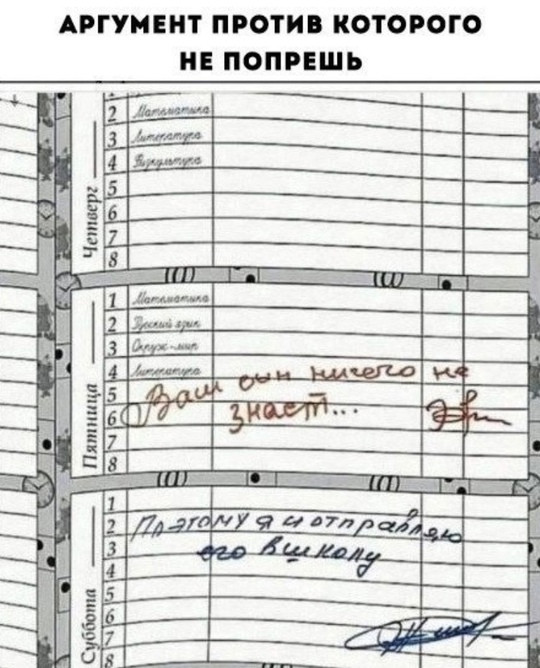 АРГУМЕНТ ПРОТИВ КОТОРОГО
НЕ ПОПРЕШЬ
Четверг
2 Математика
3 Литература
4 Физкультура
5
6
7
8
Пятница
1 Математика
2 Русский язык
3 Окруж. мир
4 Литература
5
6
7
8
Ваш сын ничего не
знает...
Суббота
1
2
3
4
5
6
7
8
Поэтому я и отправляю
его в школу